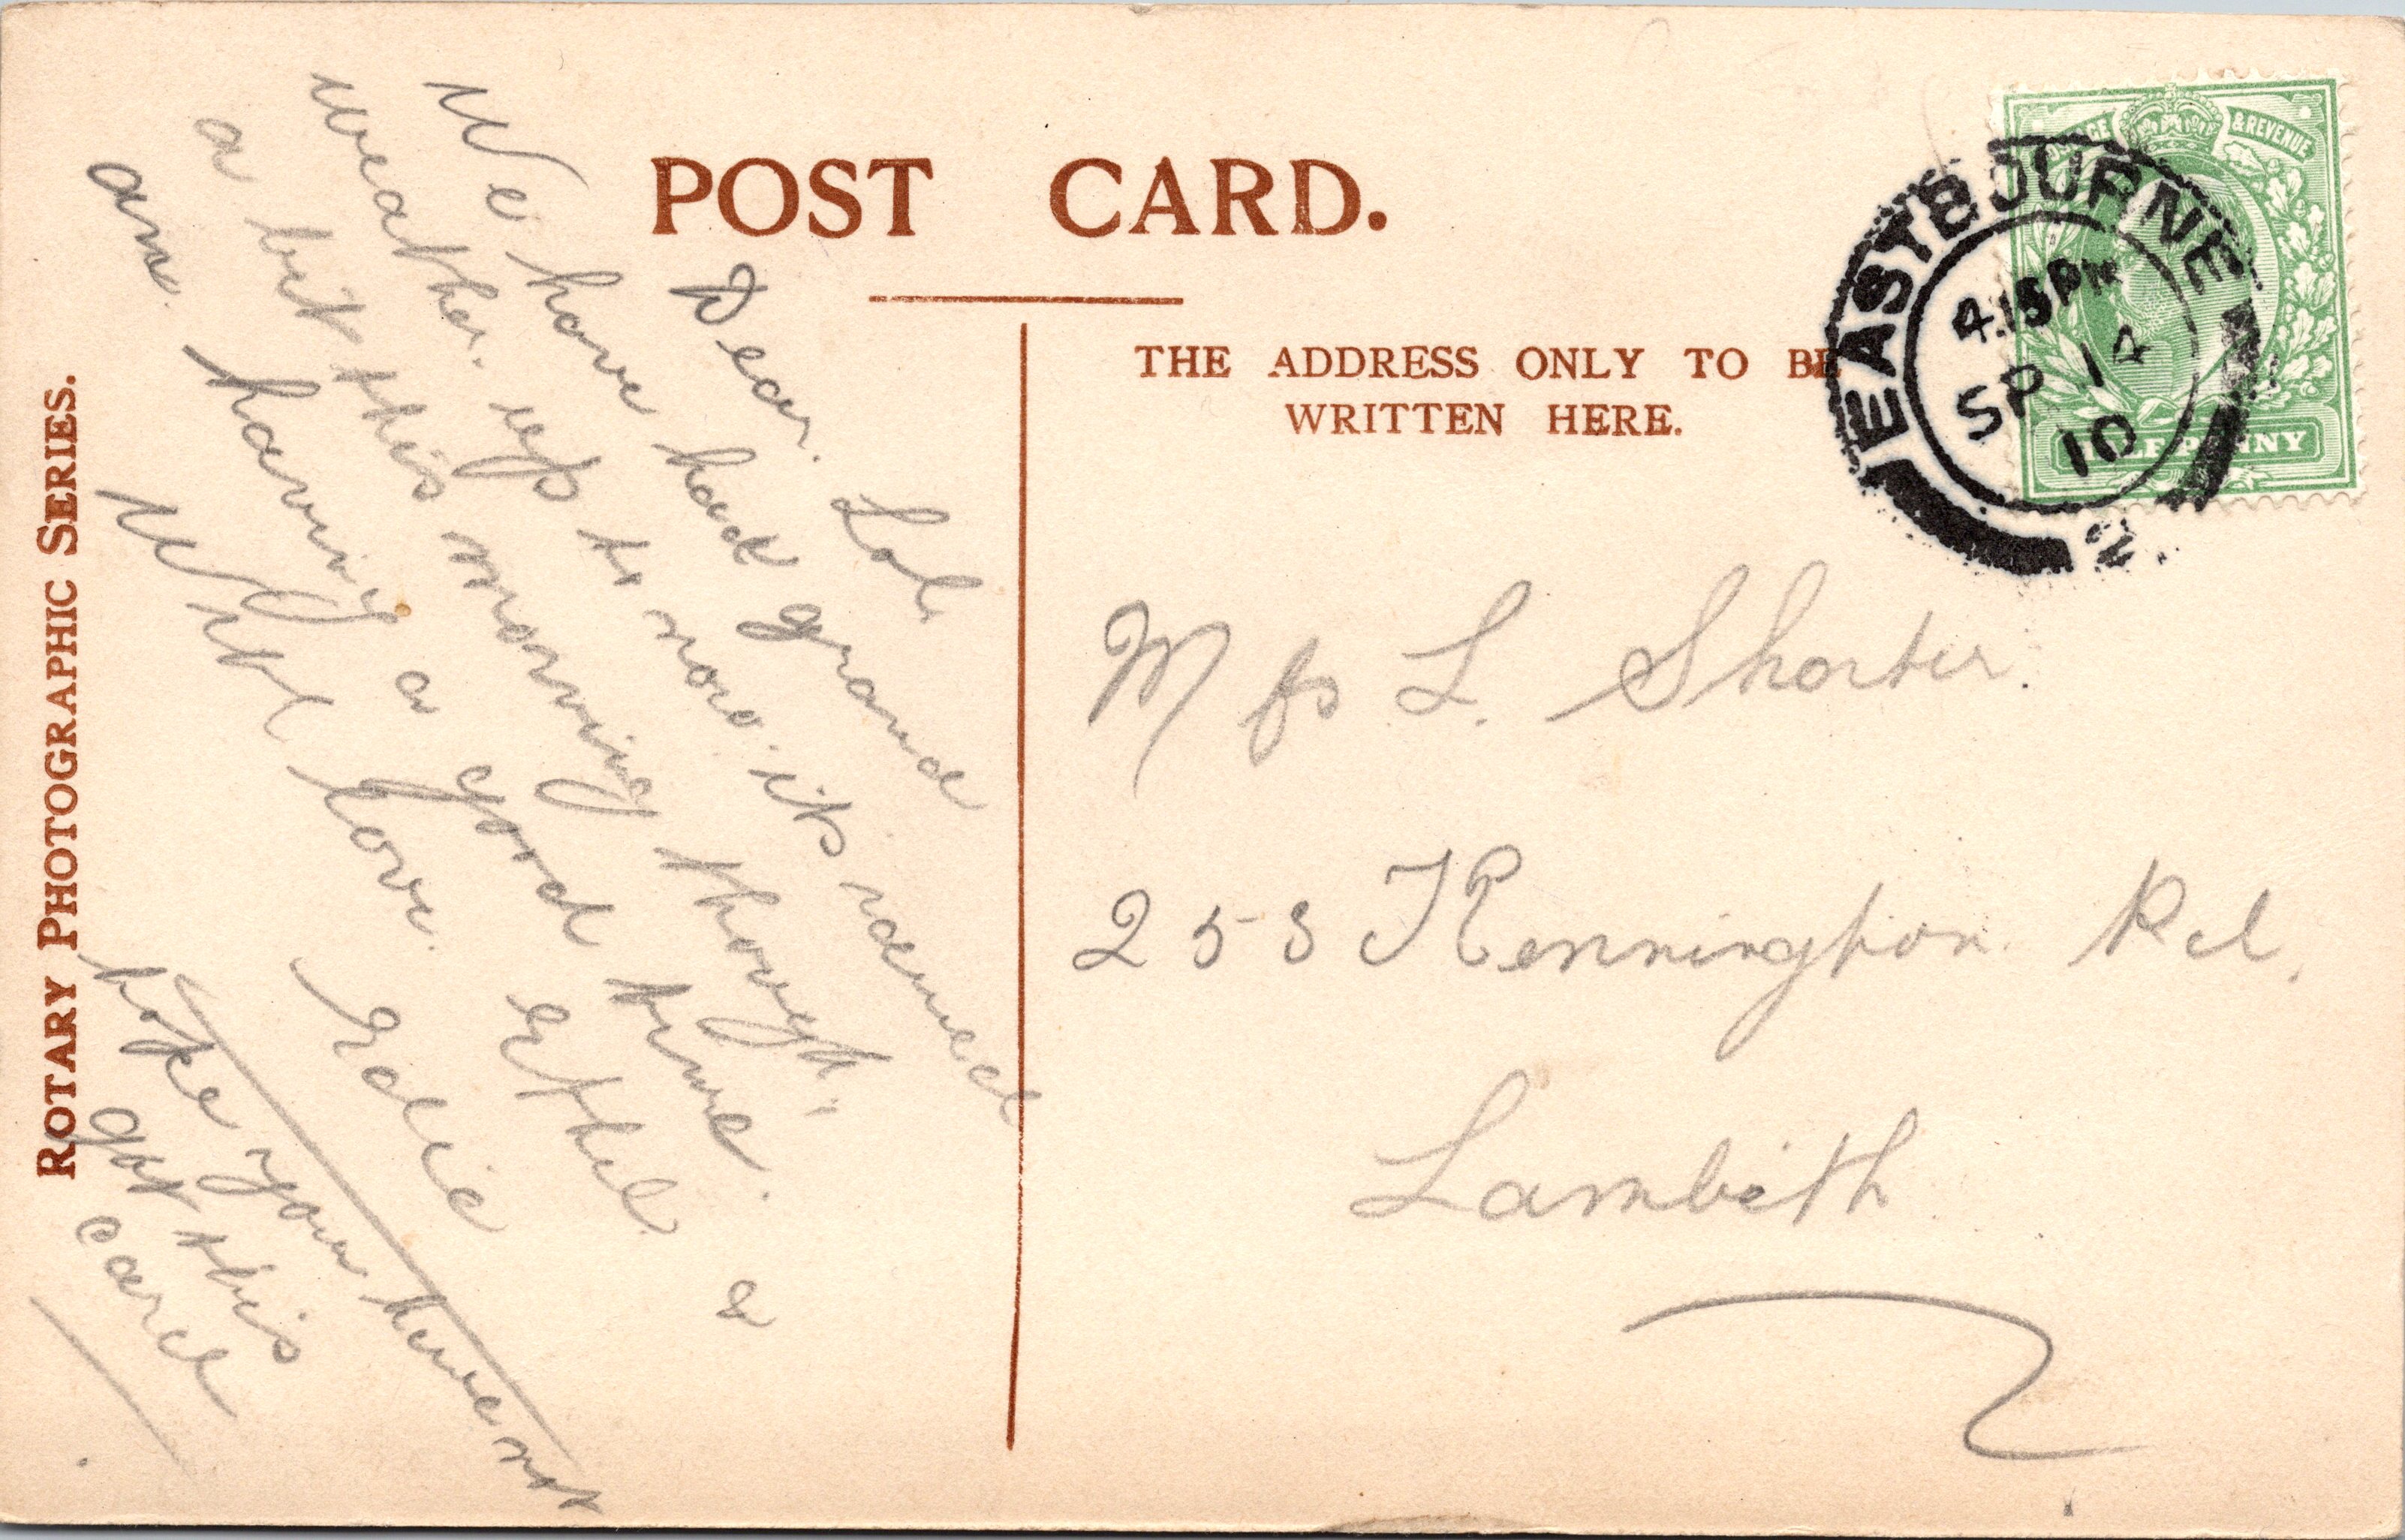 POST CARD.
THE ADDRESS ONLY TO BE
WRITTEN HERE.
ROTARY PHOTOGRAPHIC SERIES.
POSTAGE & REVENUE
HALFPENNY
EASTBOURNE
4.15PM
SP 14
10
2
Dear. Lol.
We have had grand
weather. up to now. it rained
a bit this morning though.
am. having a good time.
With love. Ethel &
Edie
hope you have not
got this
card
Miss L. Shorter.
253 Kennington Rd.
Lambeth